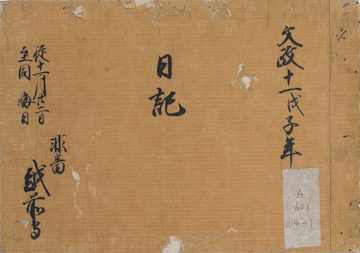 文政十一戊子年
日記
従十一月廿二日
至同 晦日
非番
越前守
A
601
4-1